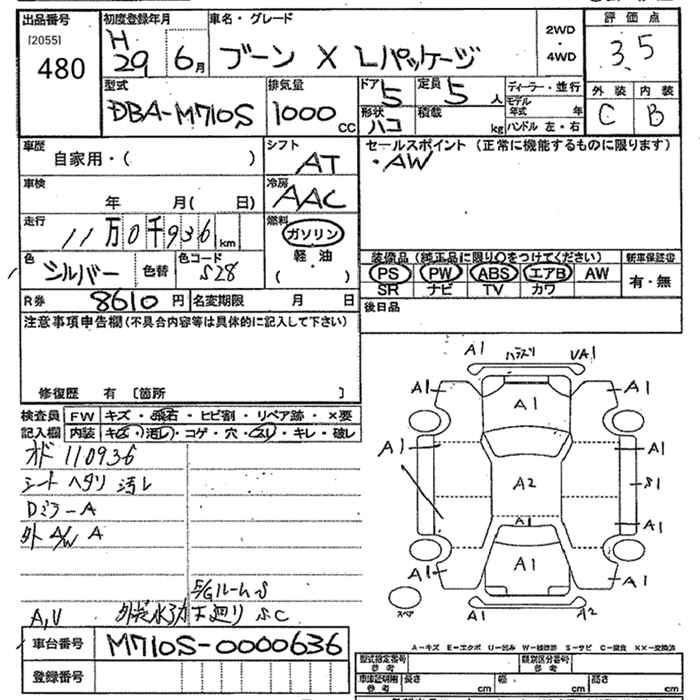 出品番号 初度登録年月 車名・グレード 評価点
[2055] 480
H 29 6月
ブーン X Lパッケージ
2WD・4WD
3.5
型式 排気量 ドア 定員 ディーラー・並行 外装 内装
DBA-M710S 1000CC 5 5人 モデル年式 年 C B
形状 ハコ 積載 kg ハンドル 左・右
車歴 シフト セールスポイント(正常に機能するものに限ります)
自家用・( ) AT ・AW
車検 冷房
年 月( 日) AAC
走行 燃料
11万0千936km ガソリン
軽油
(・)
色 色替 色コード
シルバー S28
装備品(純正品に限り○をつけてください) 新車保証書
PS PW ABS エアB AW 有・無
SR ナビ TV カワ
R券 8610円 名変期限 月 日
後日品
注意事項申告欄(不具合内容等は具体的に記入して下さい)
修復歴 有 [箇所 ]
検査員 FW キズ・飛石・ヒビ割・リペア跡・×要
記入欄 内装 キズ・汚レ・コゲ・穴・スレ・キレ・破レ
オド 110936
シート ヘタリ 汚レ
DミラーA
外A/W A
E/GルームS
A,V 下廻り S.C
車台番号 M710S-0000636
登録番号
A1 UA1
A1 A1 A1
A1 A1
A2 S1
A1 A1
A1 A1 A1
スペア A1 A2
A-キズ E-エクボ U-凹み W-補修跡 S-サビ C-腐食 XX-交換済
型式指定番号 参考 類別区分番号 参考
車庫証明用 参考 長さ cm 幅 cm 高さ cm